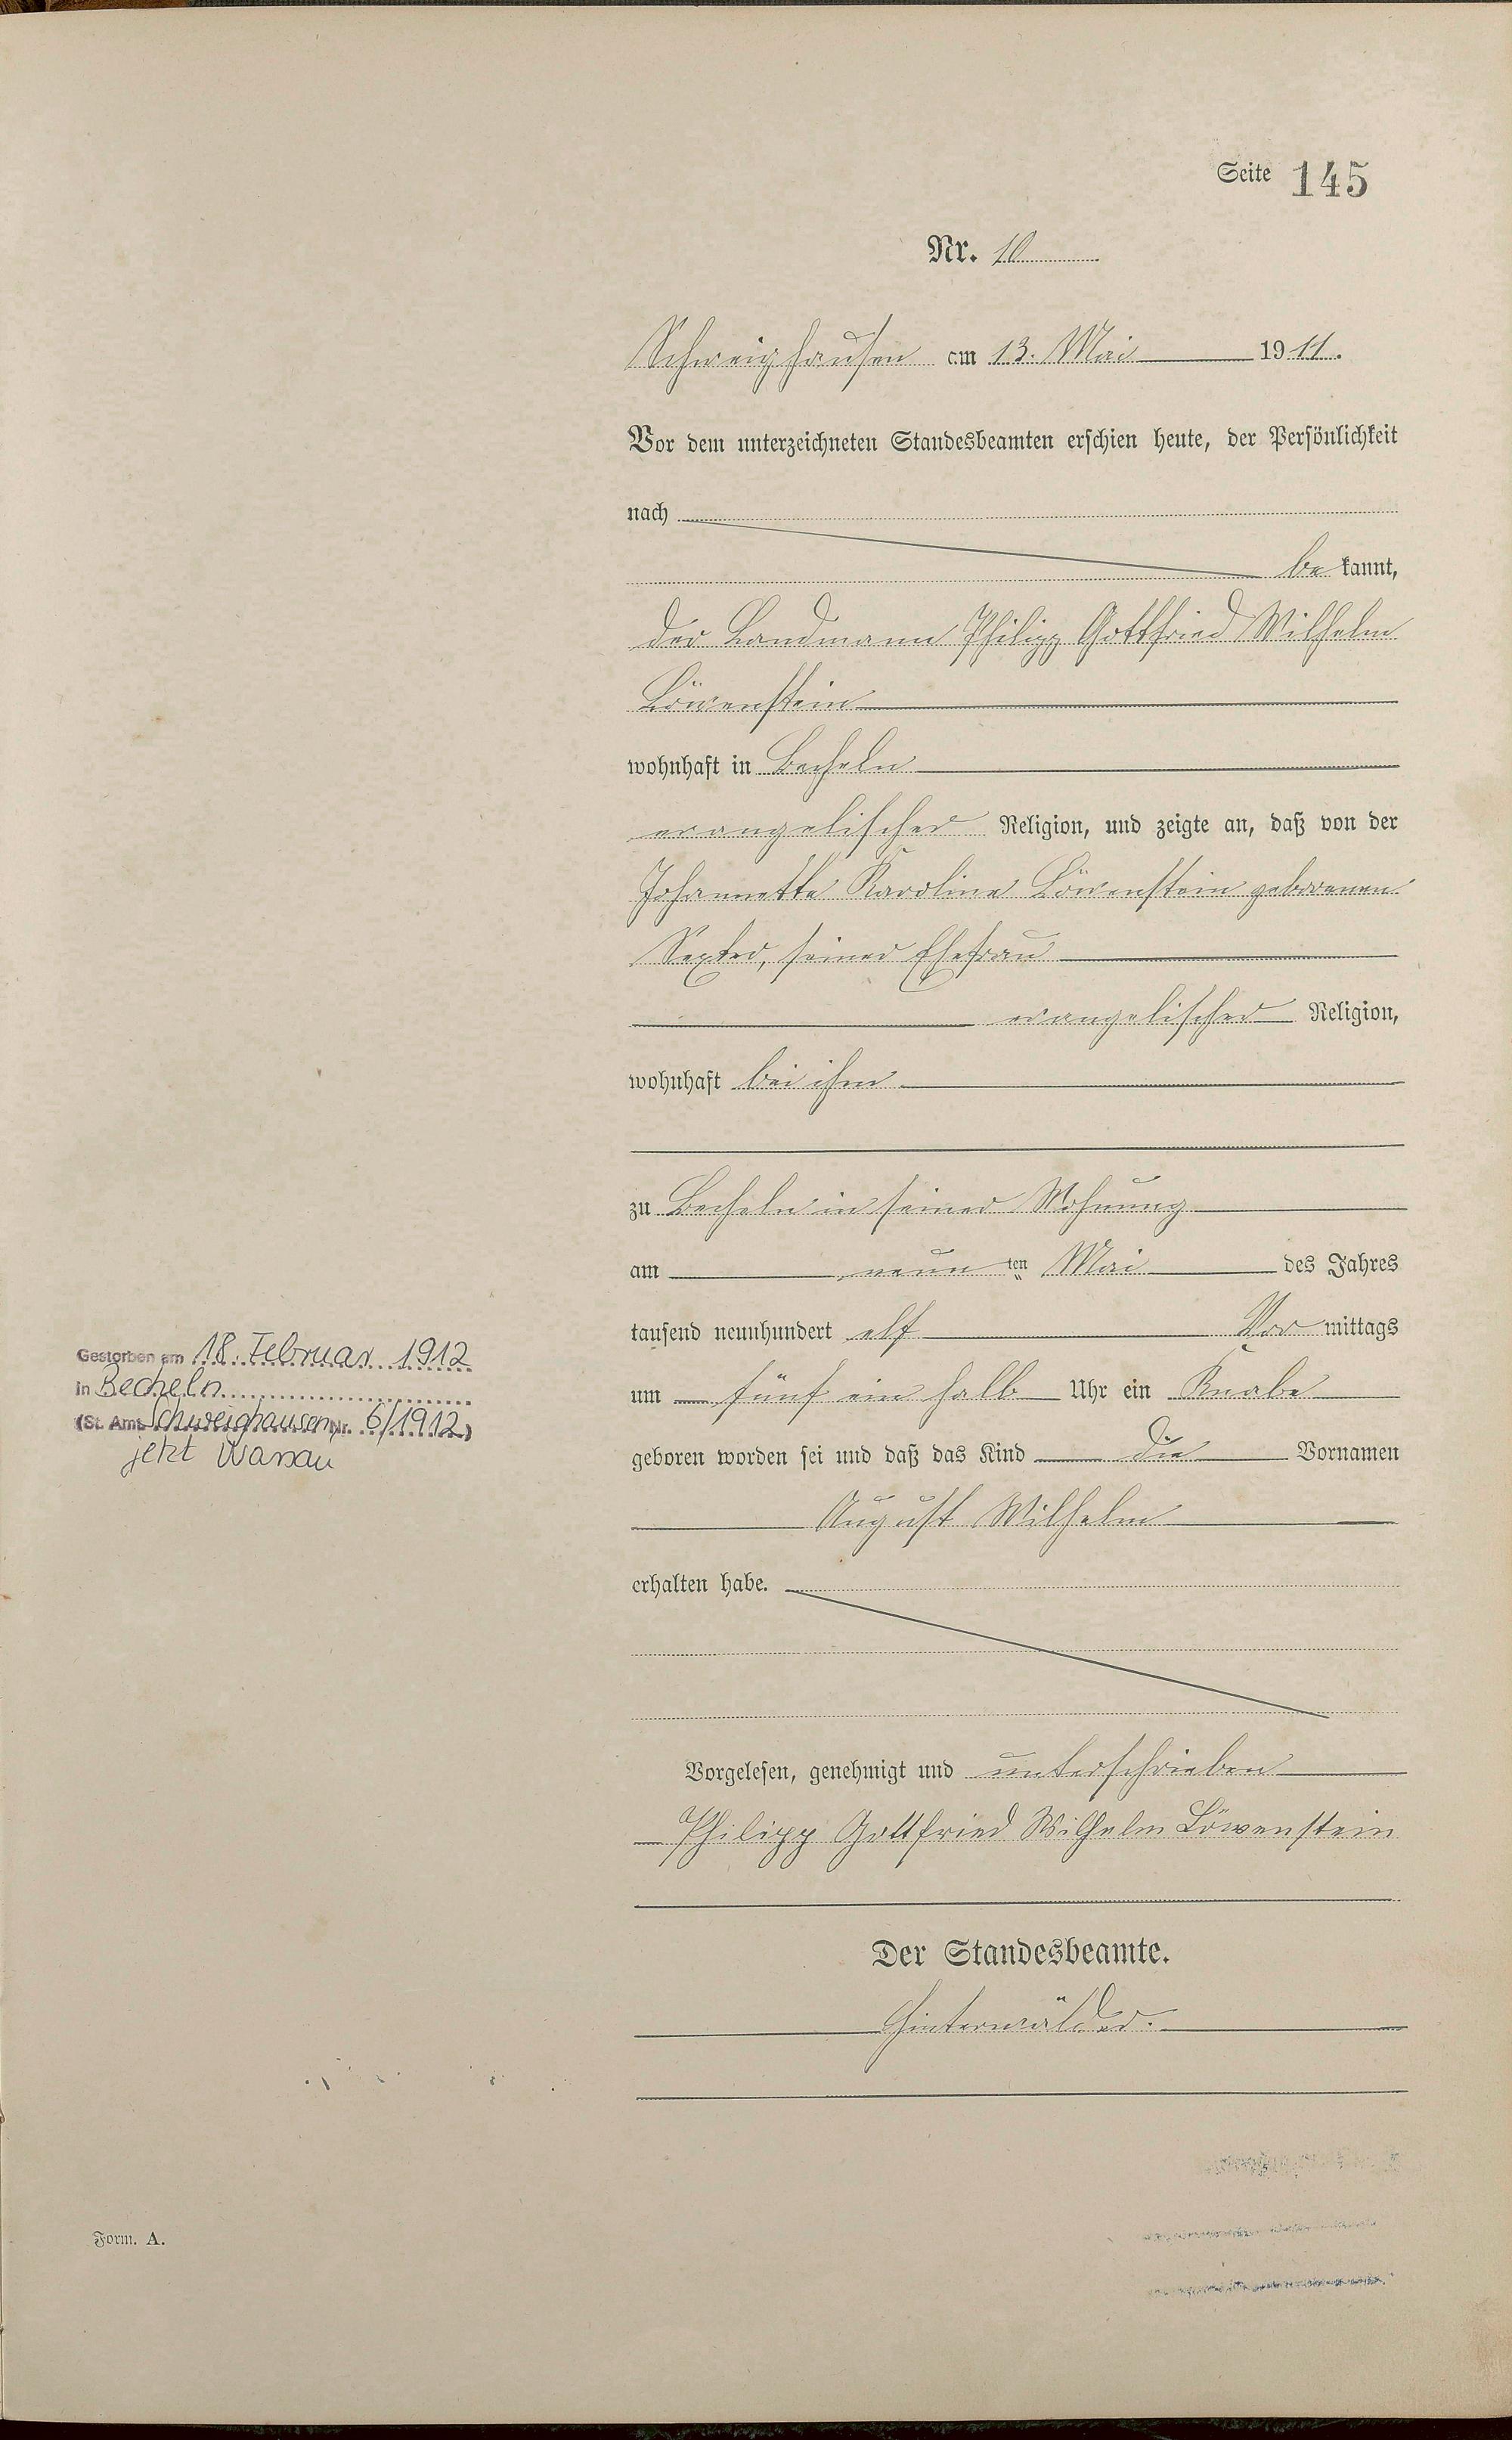 Seite 145
Nr. 10
Schweighausen am 13. Mai 1911.
Vor dem unterzeichneten Standesbeamten erschien heute, der Persönlichkeit
nach
be kannt,
der Landmann Philipp Gottfried Wilhelm
Löwenstein
wohnhaft in Becheln
evangelischer Religion, und zeigte an, daß von der
Johannette Karoline Löwenstein geborenen
Sexter, seiner Ehefrau
evangelischer Religion,
wohnhaft bei ihm
zu Becheln in seiner Wohnung
am neun ten Mai des Jahres
tausend neunhundert elf Vor mittags
um fünf ein halb Uhr ein Knabe
geboren worden sei und daß das Kind die Vornamen
August Wilhelm
erhalten habe.
Vorgelesen, genehmigt und unterschrieben
Philipp Gottfried Wilhelm Löwenstein
Der Standesbeamte.
Hinterwälder.
Gestorben am 18. Februar 1912
in Becheln
(St. Amt Schweighausen Nr. 6/1912)
jetzt Nassau
Form. A.